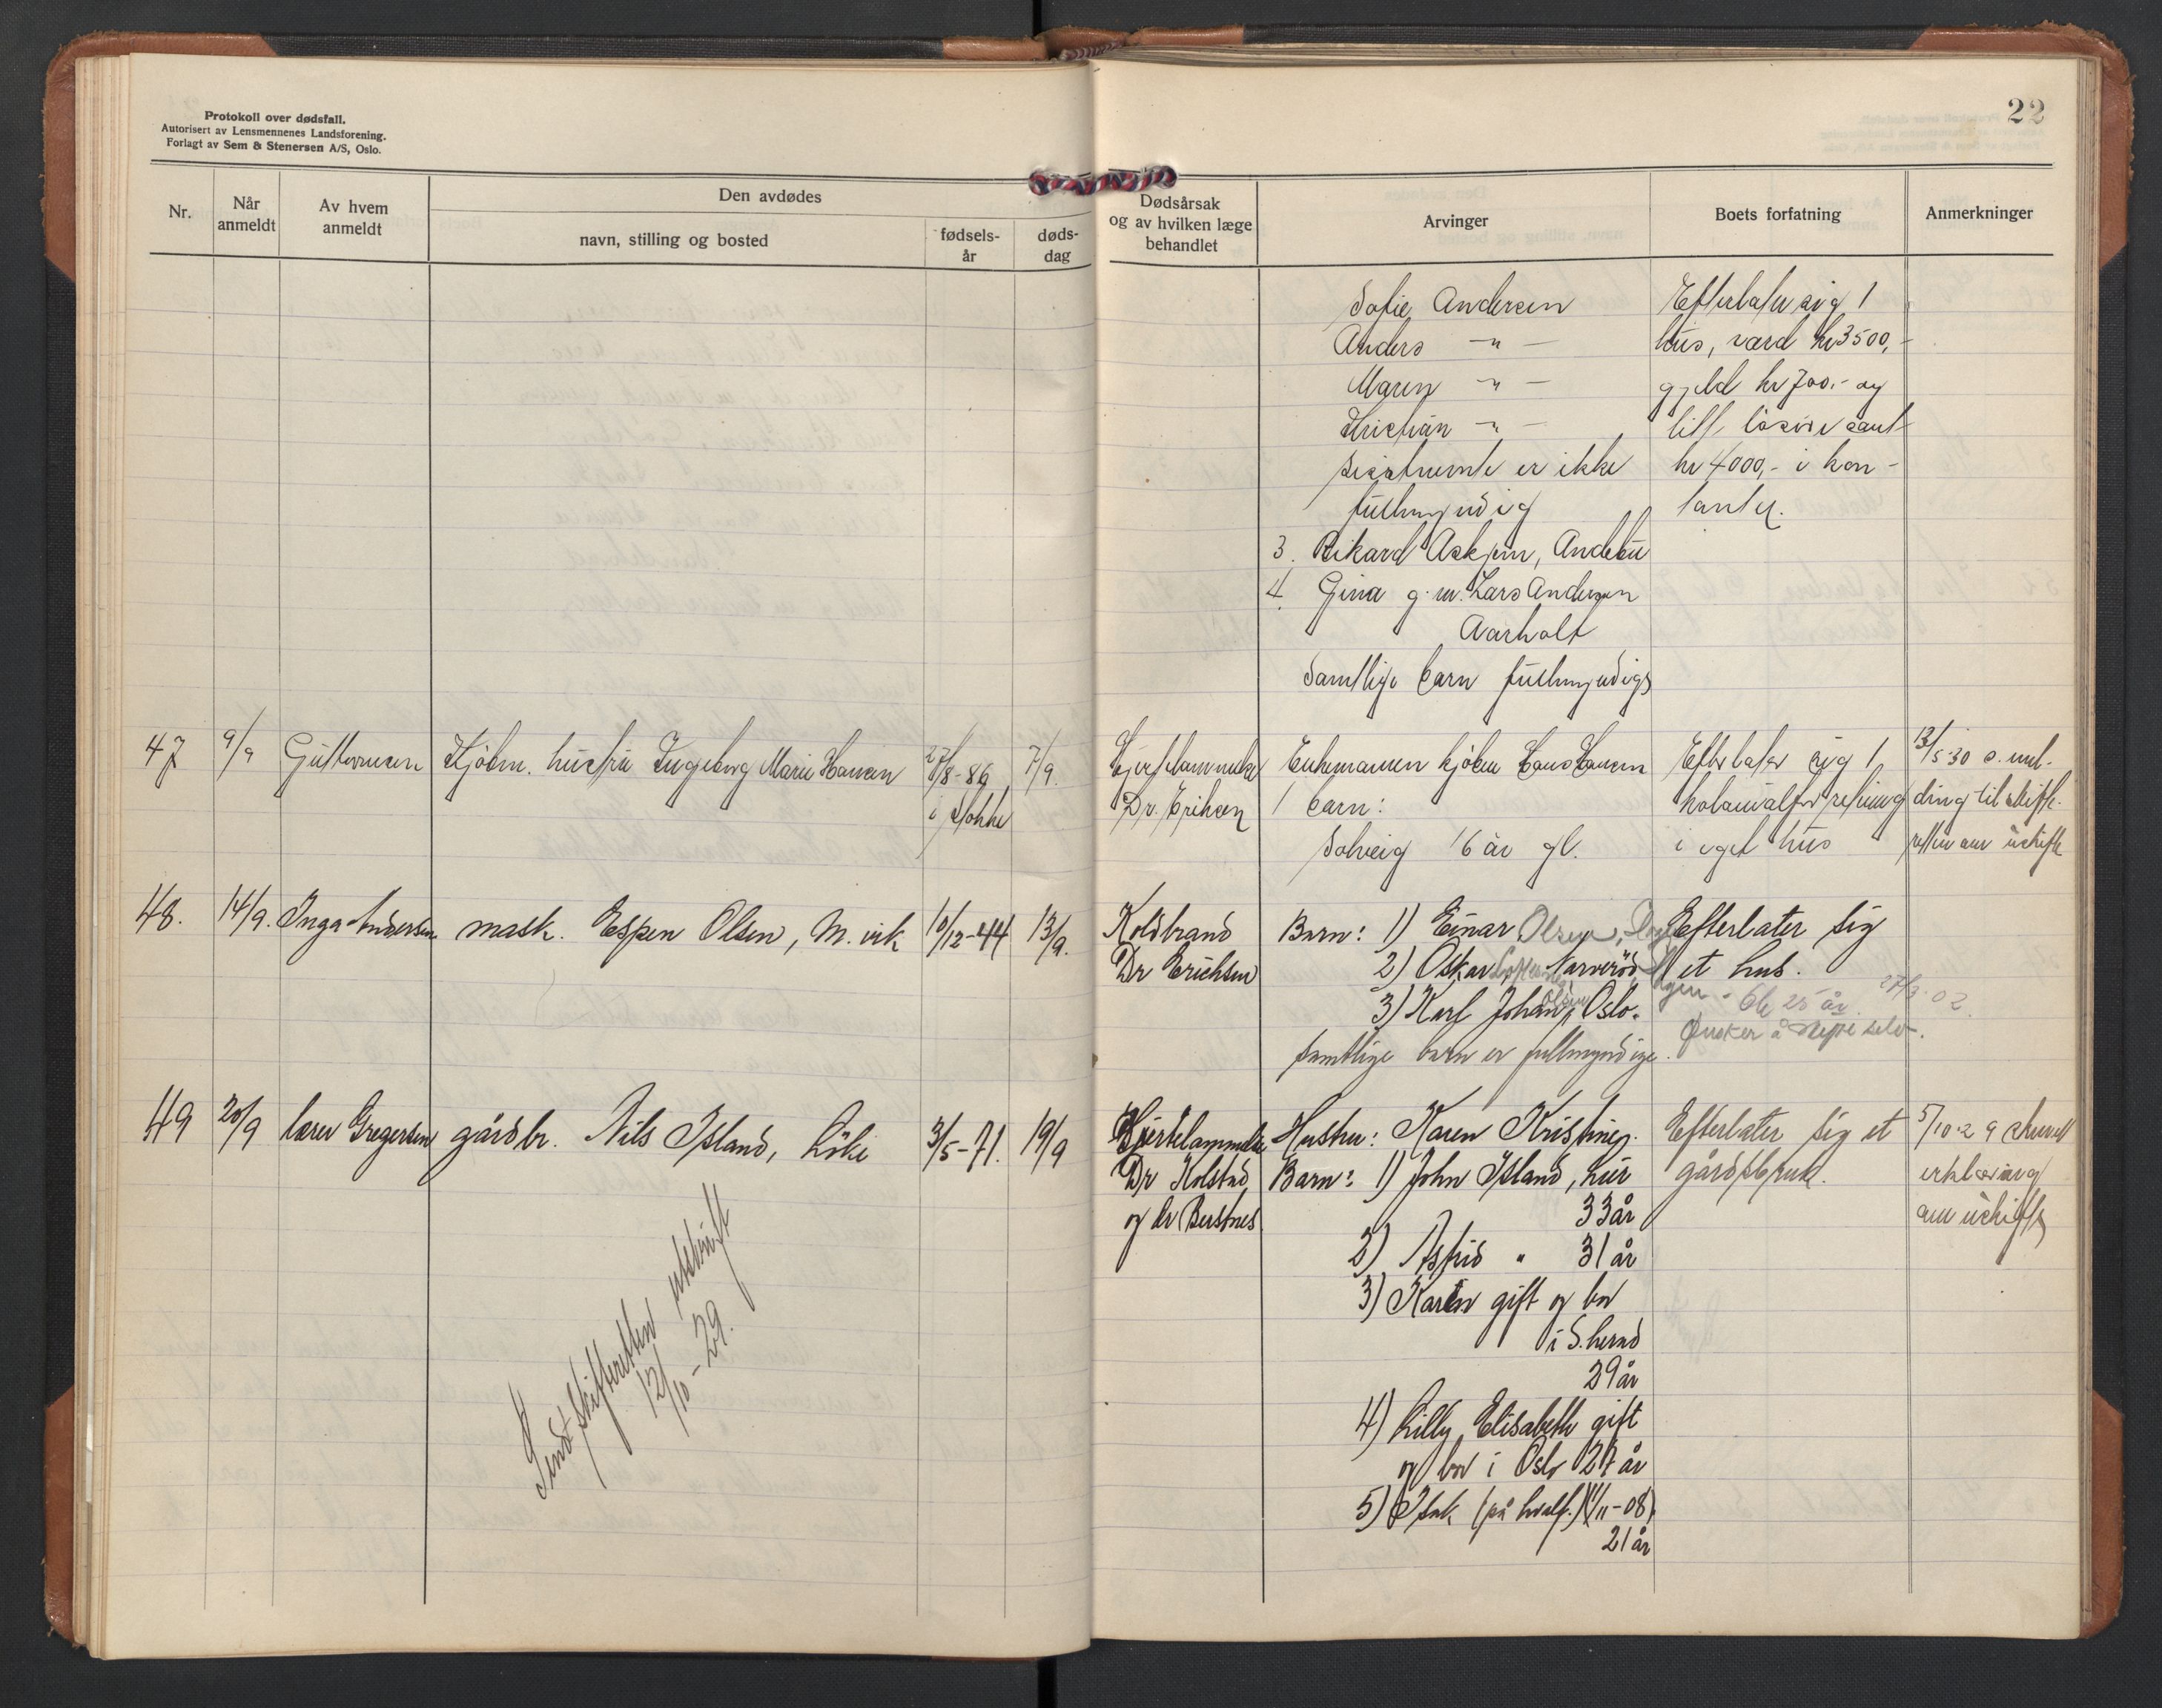 Protokoll over dødsfall.
Autorisert av Lensmennenes Landsforening.
Forlagt av Sem & Stenersen A/S, Oslo.
22
Nr.
Når anmeldt
Av hvem anmeldt
Den avdødes
navn, stilling og bosted
fødsels-
år
døds-
dag
Dødsårsak
og av hvilken læge
behandlet
Arvinger
Boets forfatning
Anmerkninger
Sofie Andersen
Anders -"-
Maren -"-
Kristian -"-
sistnevnte er ikke
fullmyndig
3. Rikard Askjem, Andebu
4. Gina g.m. Lars Andersen
Aarholt
Samtlige barn fullmyndige
Efterlater sig 1
hus, værd kr 3500,-
gjeld kr 700.- og
litt løsøre samt
kr 4000,- i kon-
tanter.
47 9/9 Guttormsen Kjøbm. hustru Ingeborg Marie Hansen 27/8-86 7/9.
i Stokke
Hjertelammelse
Dr. Eriksen
Enkemannen kjøbm Hans Hansen
1 barn:
Solveig 16 år gl.
Efterlater sig 1
kolonialforretning
i eget hus
13/5-30 s. mel-
ding til skifte-
retten om uskifte
48. 14/9. Inga Andersen mask. Espen Olsen, M. vik 10/12-44 13/9.
Koldbrand
Dr Erichsen
Barn: 1) Einar Olsen,
2) Oskar Narverød
3) Karl Johan Olsen, Oslo.
samtlige barn er fullmyndige.
Efterlater sig
et hus.
Ønsker å skifte selv.
27/3-02
49 20/9 lærer Gregersen gårdbr. Nils Island, Løke 3/5-71. 19/9
Hjertelammelse
Dr Kolstad
og dr Bustnes
Hustru: Karen Kristine.
Barn: 1) John Island, her
33 år
2) Astrid " 31 år
3) Karen gift og bor
i S.herad
29 år
4) Lilly Elisabeth gift
og bor i Oslo 27 år
5) Isak (på hvalf.) (1/11-08)
21 år
Efterlater sig et
gårdsbruk.
5/10-29
erklæring
om uskifte
Sendt skifteretten utskrift
12/10-29.